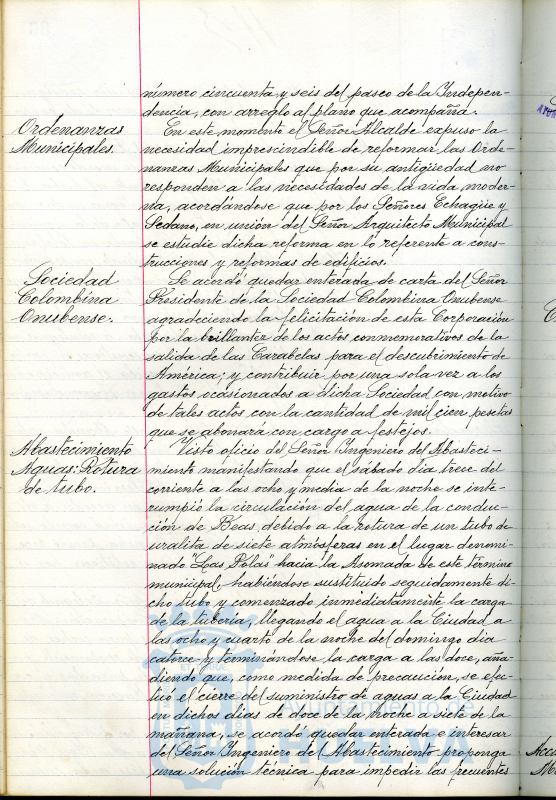 número cincuenta y seis del paseo de la Indepen-
dencia, con arreglo al plano que acompaña.
Ordenanzas
Municipales.
En este momento el Señor Alcalde expuso la
necesidad imprescindible de reformar las Orde-
nanzas Municipales que por su antigüedad no
responden a las necesidades de la vida moder-
na, acordándose que por los Señores Echagüe y
Sedano, en unión del Señor Arquitecto Municipal
se estudie dicha reforma en lo referente a cons-
trucciones y reformas de edificios.
Sociedad
Colombina
Onubense.
Se acordó quedar enterada de carta del Señor
Presidente de la Sociedad Colombina Onubense
agradeciendo la felicitación de esta Corporación
por la brillantez de los actos conmemorativos de la
salida de las Carabelas para el descubrimiento de
América; y contribuir por una sola vez a los
gastos ocasionados a dicha Sociedad con motivo
de tales actos con la cantidad de mil cien pesetas
que se abonará con cargo a festejos.
Abastecimiento
Aguas: Rotura
de tubo.
Visto oficio del Señor Ingeniero del Abasteci-
miento manifestando que el sábado dia trece del
corriente a las ocho y media de la noche se inte-
rrumpió la circulación del agua de la conduc-
ción de Beas, debido a la rotura de un tubo de
uralita de siete atmósferas en el lugar denomi-
nado "Las Polas" hacia la Asomada de este término
municipal, habiéndose sustituido seguidamente di-
cho tubo y comenzado inmediatamente la carga
de la tuberia, llegando el agua a la Ciudad a
las ocho y cuarto de la noche del domingo dia
catorce y terminándose la carga a las doce, aña-
diendo que, como medida de precaución, se efec-
tuó el cierre del suministro de aguas a la Ciudad
en dichos dias de doce de la noche a siete de la
mañana, se acordó quedar enterada e interesar
del Señor Ingeniero del Abastecimiento proponga
una solución técnica para impedir las frecuentes
Ayuntamiento de
HUELVA